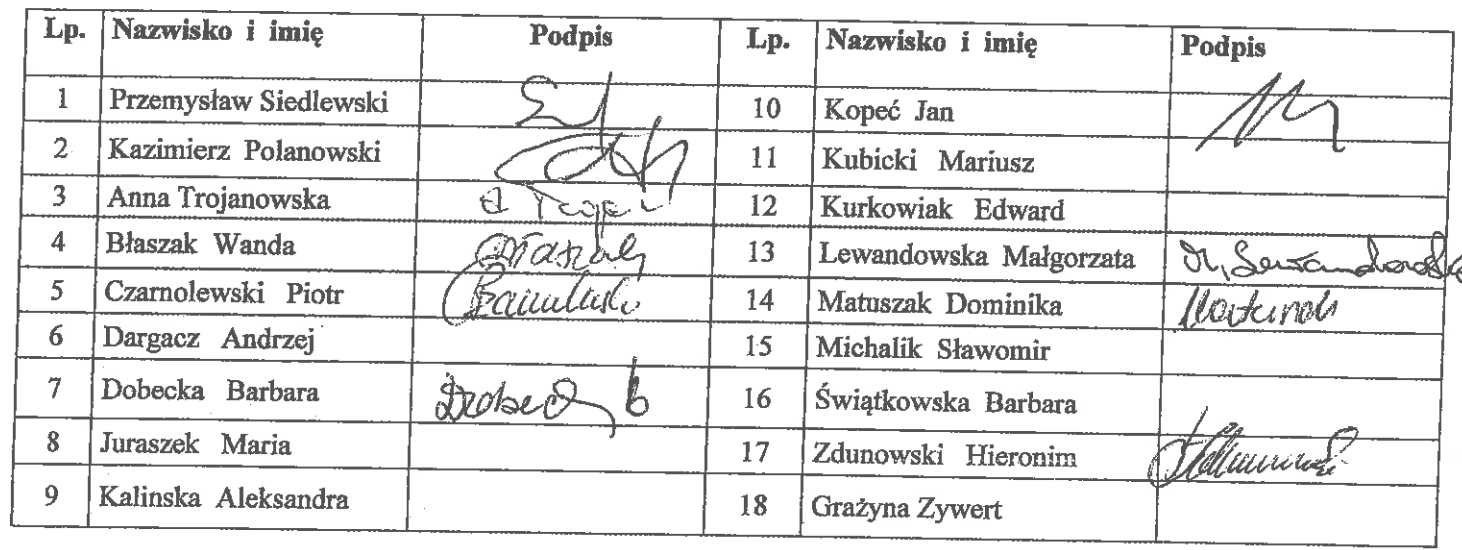 Lp. Nazwisko i imię Podpis Lp. Nazwisko i imię Podpis
1 Przemysław Siedlewski 10 Kopeć Jan
2 Kazimierz Polanowski 11 Kubicki Mariusz
3 Anna Trojanowska 12 Kurkowiak Edward
4 Błaszak Wanda 13 Lewandowska Małgorzata
5 Czarnolewski Piotr 14 Matuszak Dominika
6 Dargacz Andrzej 15 Michalik Sławomir
7 Dobecka Barbara 16 Świątkowska Barbara
8 Juraszek Maria 17 Zdunowski Hieronim
9 Kalinska Aleksandra 18 Grażyna Zywert